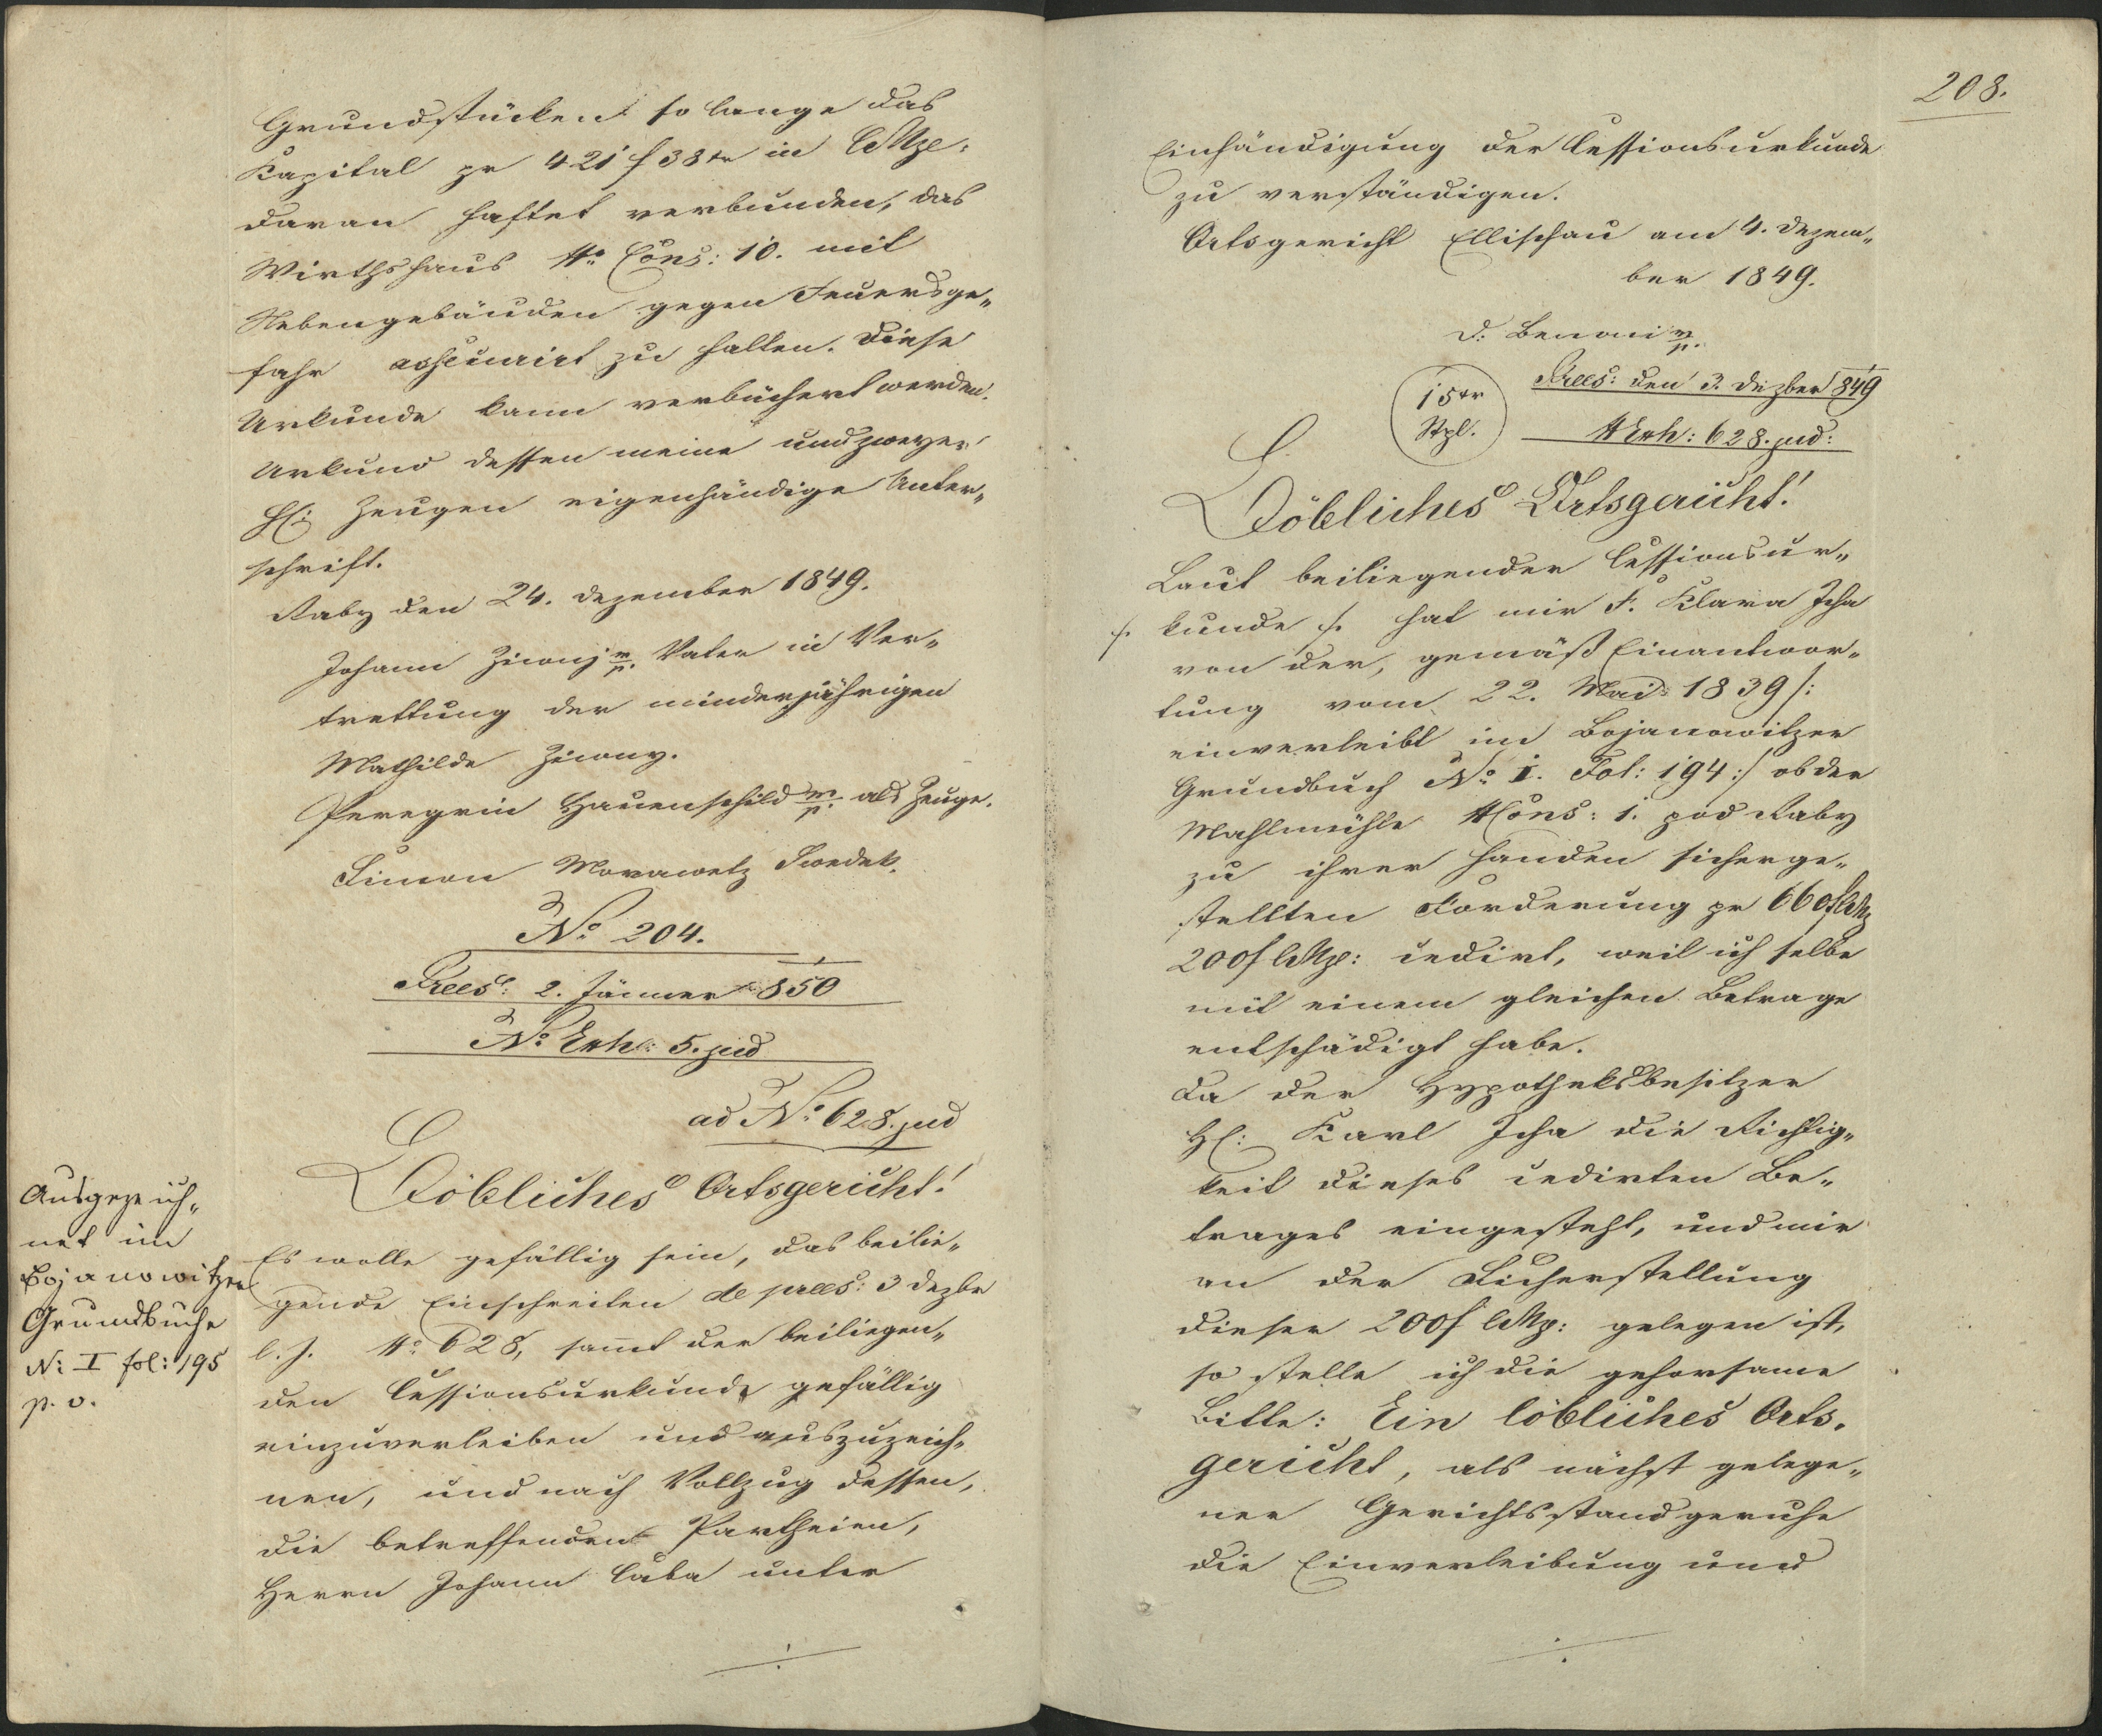 Grundstücken so lange das
Kapital pr 421 f 38 kr in CMze:
daran haftet verbunden, das
Wirthshaus No Cons: 10. mit
Nebengebäuden gegen Feuersge„
fahr assecurirt zu halten. Diese
Urkunde kann verbüchert werden.
Urkund dessen meine und zweyer
H: Zeugen eigenhändige Unter„
schrift.
Raby den 24. Dezember 1849.
Johann mp. Vater in Ver„
trettung der minderjährigen
Mathilde
Peregrin Hauenschild mp. als Zeuge.
Simon Morawetz Swedek.
No 204.
Praes: 2. Jänner 850
No Exh: 5. jud
ad No 628. jud
Löbliches Ortsgericht!
Es wolle gefällig sein, das beilie„
gende Einschreiten de praes: 3 Dezbr
l. J. No 628, samt der beiliegen„
den Cessionsurkunde gefällig
einzuverleiben und auszuzeich„
nen, und nach Vollzug dessen,
die betreffenden Partheien,
Herrn Johann Caba unter
Ausgezeich„
net im
Bojanowitzer
Grundbuche
N: I fol: 195
p. v.
208.
Einhändigung der Cessionsurkunde
zu verständigen.
Ortsgericht Ellischau am 4. Dezem„
ber 1849.
D. Benoni mp.
15 kr
Stpl.
Praes: den 3. Dezber 849
N Exh: 628. jud:
Löbliches Ortsgericht!
Laut beiliegender Cessionsur„
/. kunde /. hat mir F. Klara Icha
von der, gemäß Einantwor„
tung vom 22. Mai 1839 /:
einverleibt im Bojanowitzer
Grundbuch No I. Fol: 194 :/ ob der
Mahlmühle NCons: 1. pod Raby
zu ihrer Handen sicherge„
stellten Forderung pr 660 f CMz
200 f CMze: cedirt, weil ich selbe
mit einem gleichen Betrage
entschädigt habe.
Da der Hypotheksbesitzer
H: Karl Icha die Richtig„
keit dieses cedirten Be„
trages eingesteht, und mir
an der Sicherstellung
dieser 200 f CMz: gelegen ist,
so stelle ich die gehorsame
Bitte: Ein löbliches Orts„
gericht, als nächst gelege„
ner Gerichtsstand geruhe
die Einverleibung und